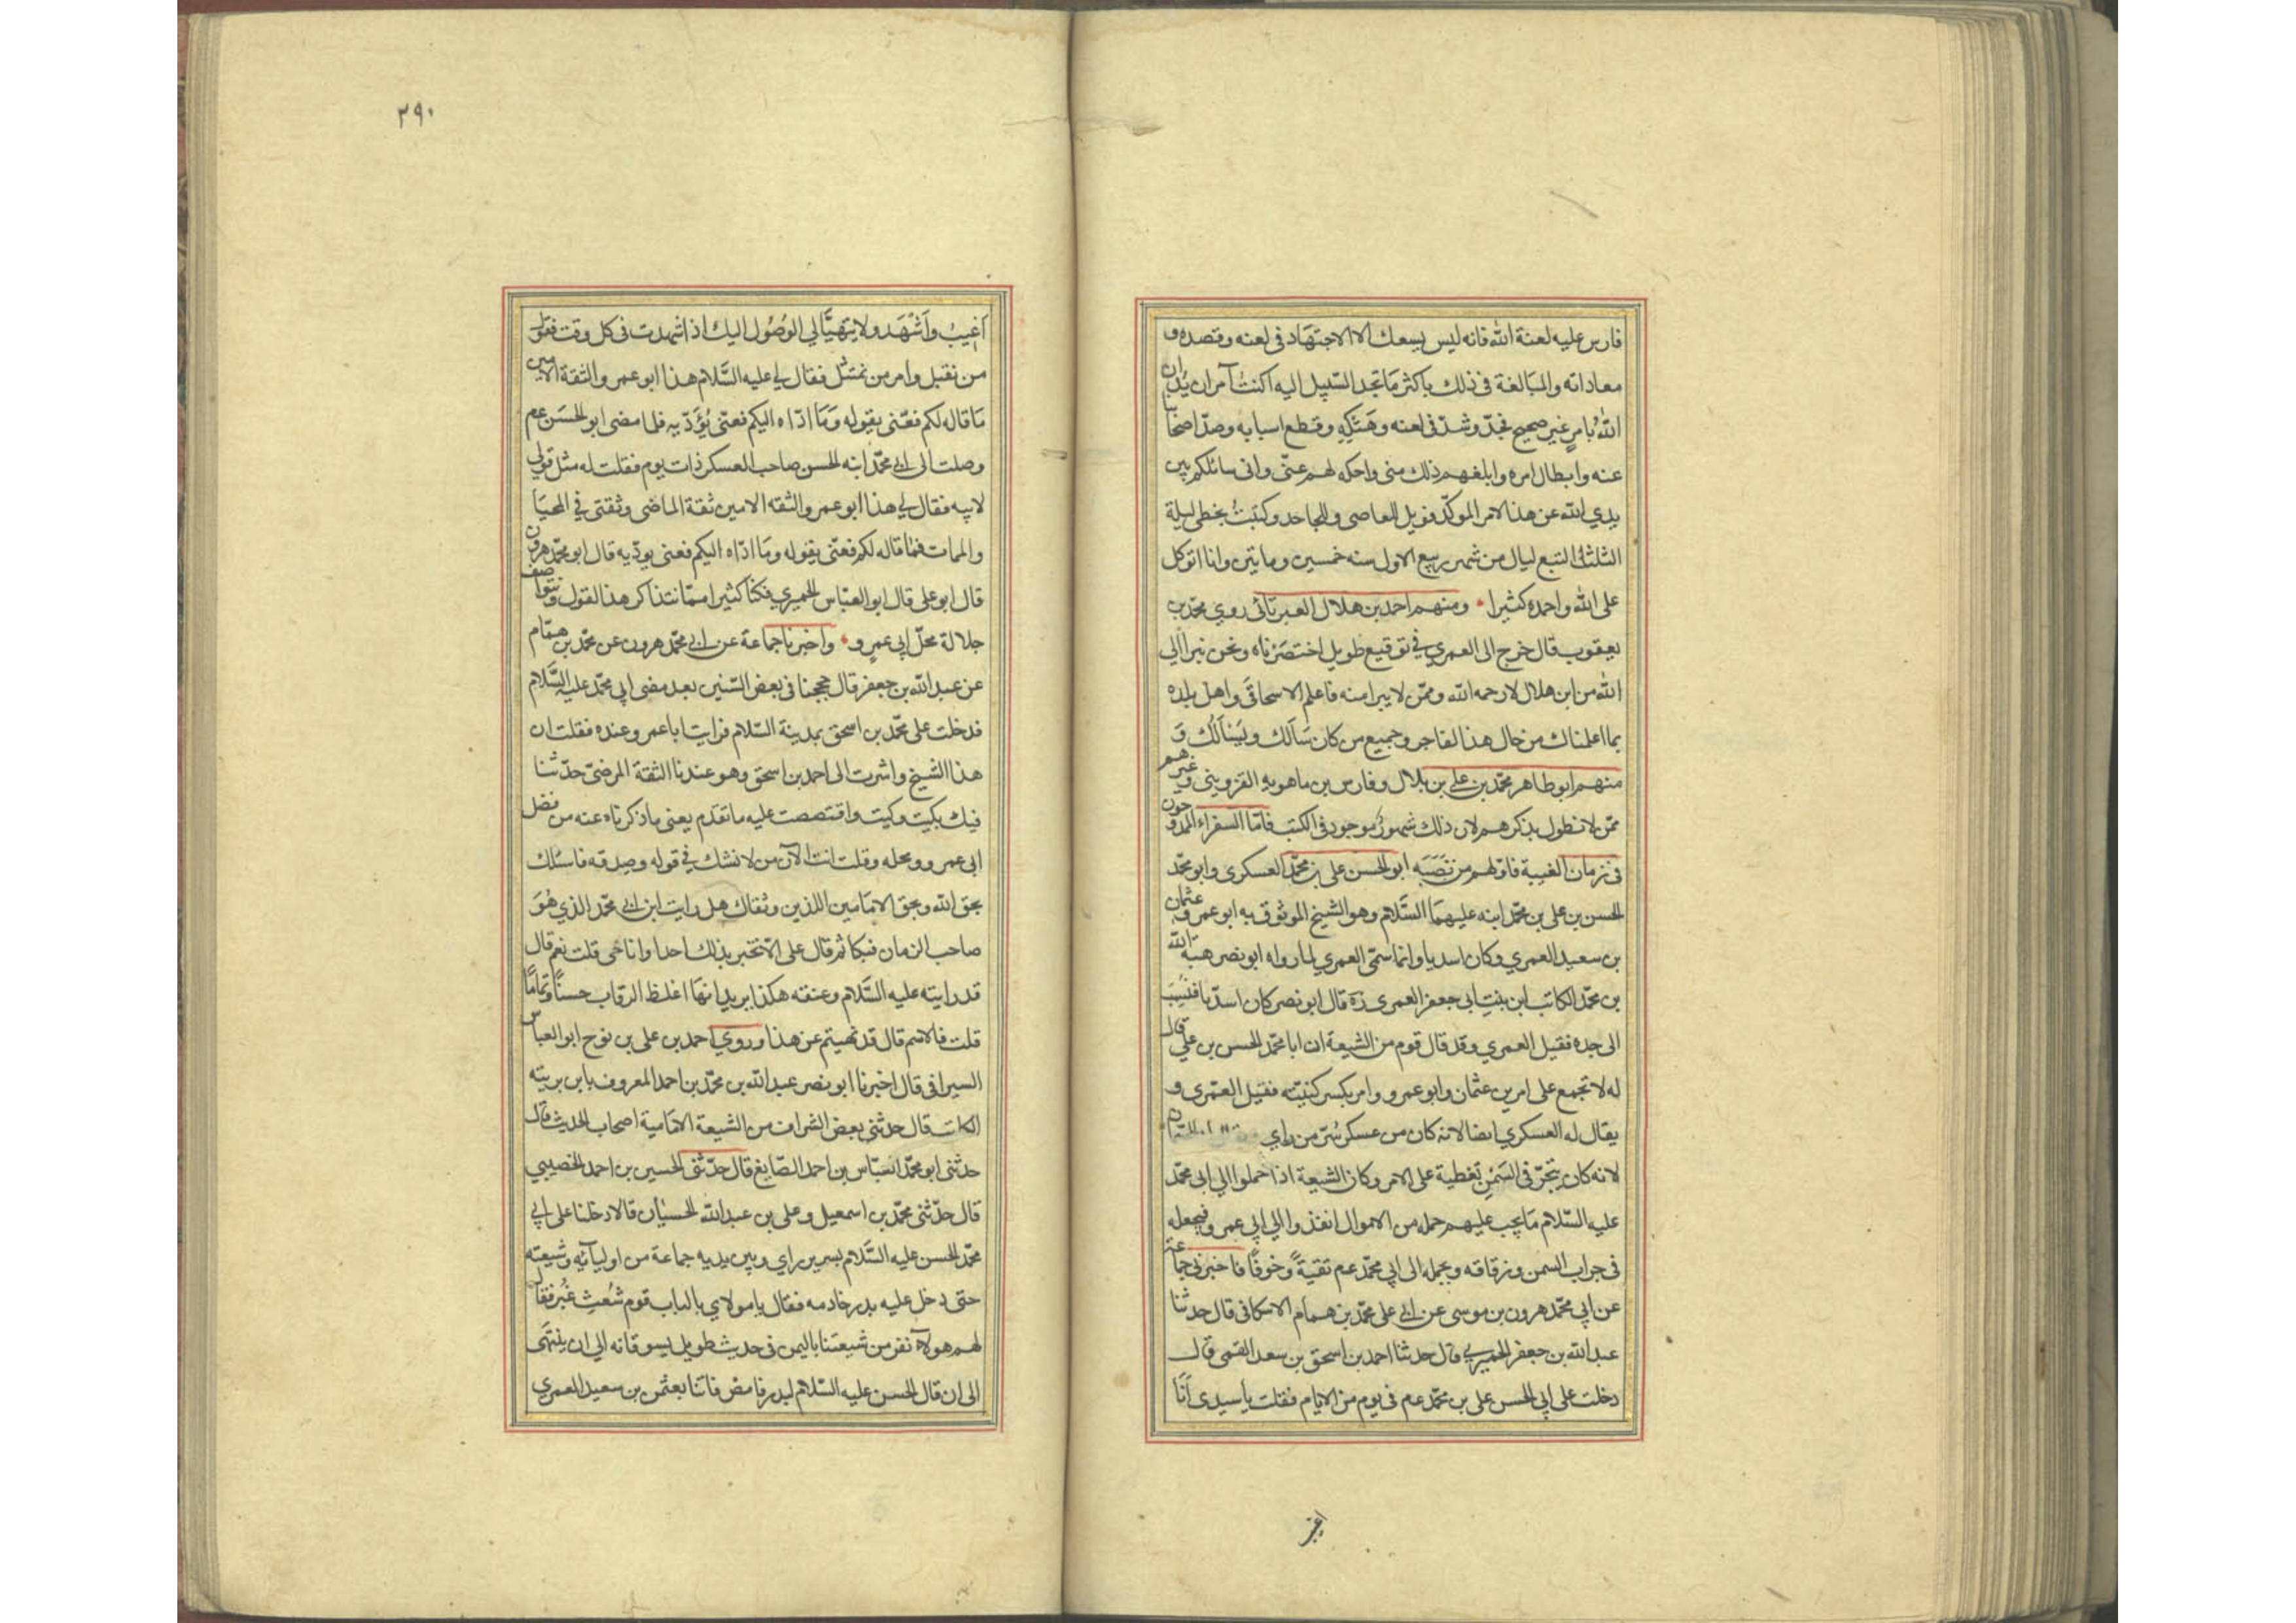 فارس عليه لعنة الله فانه ليس يسعك الا الاجتهاد في لعنه وقصده و
معاداته والمبالغة في ذلك باكثر ما تجد السبيل اليه اكنت آمر ان يدان
الله بامر غير صحيح فجد وشد في لعنه وهتكه وقطع اسبابه وصد اصحابنا
عنه وابطال امره وابلغهم ذلك مني واحكه لهم عني واني سائلكم بين
يدي الله عن هذا الامر الموكد فويل للعاصي وللجاحد وكتبت بخطي ليلة
الثلثا لتسع ليال من شهر ربيع الاول سنه خمسين وماتين وانا اتوكل
على الله واحمده كثيرا ومنهم احمد بن هلال العبرتائي روي محمد بن
يعقوب قال خرج الى العمري في توقيع طويل اختصرناه ونحن نبرا الي
الله من ابن هلال لا رحمه الله وممن لا يبرا منه فاعلم الاسحاقي واهل بلده
بما اعلمناك من حال هذا الفاجر وجميع من كان سالك ويسالك و
منهم ابو طاهر محمد بن علي بن بلال وفارس بن ماهويه القزويني وغيرهم
ممن لا نطول بذكرهم لان ذلك مشهور موجود في الكتب فاما السفراء الممدوحون
في زمان الغيبة فاولهم من نصبه ابو الحسن علي بن محمد العسكري وابو محمد
الحسن بن علي بن محمد ابنه عليهما السلام وهو الشيخ الموثوق به ابو عمرو عثمان
بن سعيد العمري وكان اسديا وانما سمي العمري لما رواه ابو نصر هبة الله
بن محمد الكاتب ابن بنت ابي جعفر العمري ره قال ابو نصر كان اسديا فنسب
الى جده فقيل العمري وقد قال قوم من الشيعة ان ابا محمد الحسن بن علي قال
له لا تجمع على امرين عثمان وابو عمرو وامر بكسر كنيته فقيل العمري و
يقال له العسكري ايضا لانه كان من عسكر سر من راي
لانه كان يتجر في السمن تغطية على الامر وكان الشيعة اذا حملوا الي ابي محمد
عليه السلام ما يجب عليهم حمله من الاموال انفذوا الي ابي عمرو فيجعله
في جراب السمن وزقاقه ويحمله الى ابي محمد عم تقية وخوفا فاخبرني جماعة
عن ابي محمد هرون بن موسى عن ابي علي محمد بن همام الاسكافي قال حدثنا
عبد الله بن جعفر الحميري قال حدثنا احمد بن اسحق بن سعد القمي قال
دخلت على ابي الحسن علي بن محمد عم في يوم من الايام فقلت يا سيدي انا
اغيب
٢٩٠
اغيب واشهد ولا يتهيا لي الوصول اليك اذا شهدت في كل وقت فقول
من نقبل وامر من نمتثل فقال لي عليه السلام هذا ابو عمرو الثقة الامين
ما قاله لكم فعني يقوله وما اداه اليكم فعني يؤديه فلما مضى ابو الحسن عم
وصلت الى ابي محمد ابنه الحسن صاحب العسكر ذات يوم فقلت له مثل قولي
لابيه فقال لي هذا ابو عمرو الثقه الامين ثقة الماضي وثقتي في المحيا
والممات فما قاله لكم فعني يقوله وما اداه اليكم فعني يوديه قال ابو محمد هرون
قال ابو علي قال ابو العباس الحميري فكنا كثيرا مما نتذاكر هذا القول ونتواصف
جلالة محل ابي عمرو واخبرنا جماعة عن ابي محمد هرون عن محمد بن همام
عن عبد الله بن جعفر قال حججنا في بعض السنين بعد مضي ابي محمد عليه السلام
فدخلت على محمد بن اسحق بمدينة السلام فرايت ابا عمرو عنده فقلت ان
هذا الشيخ واشرت الى احمد بن اسحق وهو عندنا الثقة المرضي حدثنا
فيك بكيت وكيت واقتصصت عليه ما تقدم يعني ما ذكرناه عنه من فضل
ابي عمرو ومحله وقلت انت الآن من لا نشك في قوله وصدقه فاسئلك
بحق الله وبحق الامامين اللذين وثقاك هل رايت ابن ابي محمد الذي هو
صاحب الزمان فبكا ثم قال على الا تخبر بذلك احدا وانا حي قلت نعم قال
قد رايته عليه السلام وعنقه هكذا يريد انها اغلظ الرقاب حسنا وتماما
قلت فالاسم قال قد نهيتم عن هذا وروي احمد بن علي بن نوح ابو العباس
السيرافي قال اخبرنا ابو نصر عبد الله بن محمد بن احمد المعروف بابن برينه
الكاتب قال حدثني بعض الشراف من الشيعة الامامية اصحاب الحديث قال
حدثني ابو محمد العباس بن احمد الصايغ قال حدثني الحسين بن احمد الخصيبي
قال حدثني محمد بن اسمعيل وعلي بن عبد الله الحسنيان قالا دخلنا على ابي
محمد الحسن عليه السلام بسر من راي وبين يديه جماعة من اوليآئه وشيعته
حتى دخل عليه بدر خادمه فقال يا مولاي بالباب قوم شعث غبر فقال
لهم هولاء نفر من شيعتنا باليمن في حديث طويل يسوقانه الي ان ينتهى
الى ان قال الحسن عليه السلام لبدر فامض فاتنا بعثمن بن سعيد العمري